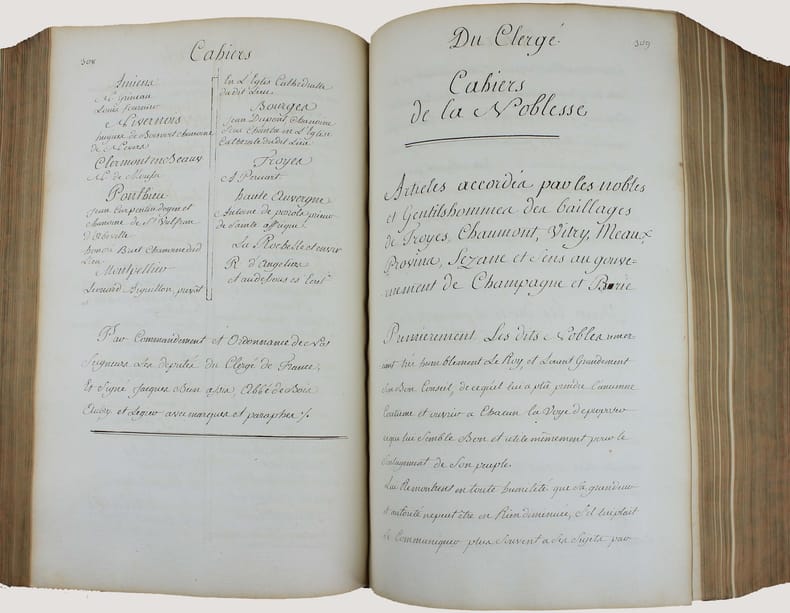 308
Cahiers
Amiens
Louis fournier
Nivernois
hugues de Boisvert chanoine
de Nevers
Clermont en Beauv
Mr de Moussy
Ponthieu
Jean Carpentin doyen et
chanoine de St Vulfran
d'Abbeville
honoré Buit Chanoine dud
Lieu
Montpellier
Leonard Aiguillon prevôt
en L'Eglise Cathedralle
dudit Lieu
Bourges
Jean Dupont, Chanoine
en L'Eglise
Cathedrale dudit Lieu
Troyes
A. Pevuart
haute Auvergne
Antoine de prieur
de Sainte
La Rochelle et envir
R. d'Angelins
et audessous est Ecrit
Par Commandement et Ordonnance de Nos
Seigneurs Les deputés du Clergé de France,
Et Signé Jacques Bien assis, Abbé de Bois
Aubry, et Legier avec marques et paraphes ./.
Du Clergé.
309
Cahiers
de la Noblesse
Articles accordés par les nobles
et Gentilshommes des bailliages
de Troyes, Chaumont, Vitry, Meaux,
Provins, Sezane et Sens au gouve-
rnement de Champagne et Brie
Premierement Les dits Nobles remer-
cient très humblement Le Roy, et Laditt Grandement
Son Bon Conseil, de ce qu'el lui a plû prendre l'ancienne
Coutume et ouvrir a Chacun la Voye de proposer
ce que lui Semble Bon et utile mêmement pour le
Soulagement de Son peuple.
Lui Remontrent en toute humilité que Sa grandeur
et autorité ne peut être en Rien diminuée, S'il lui plait
Se Communiquer plus Souvent à Ses Sujets par